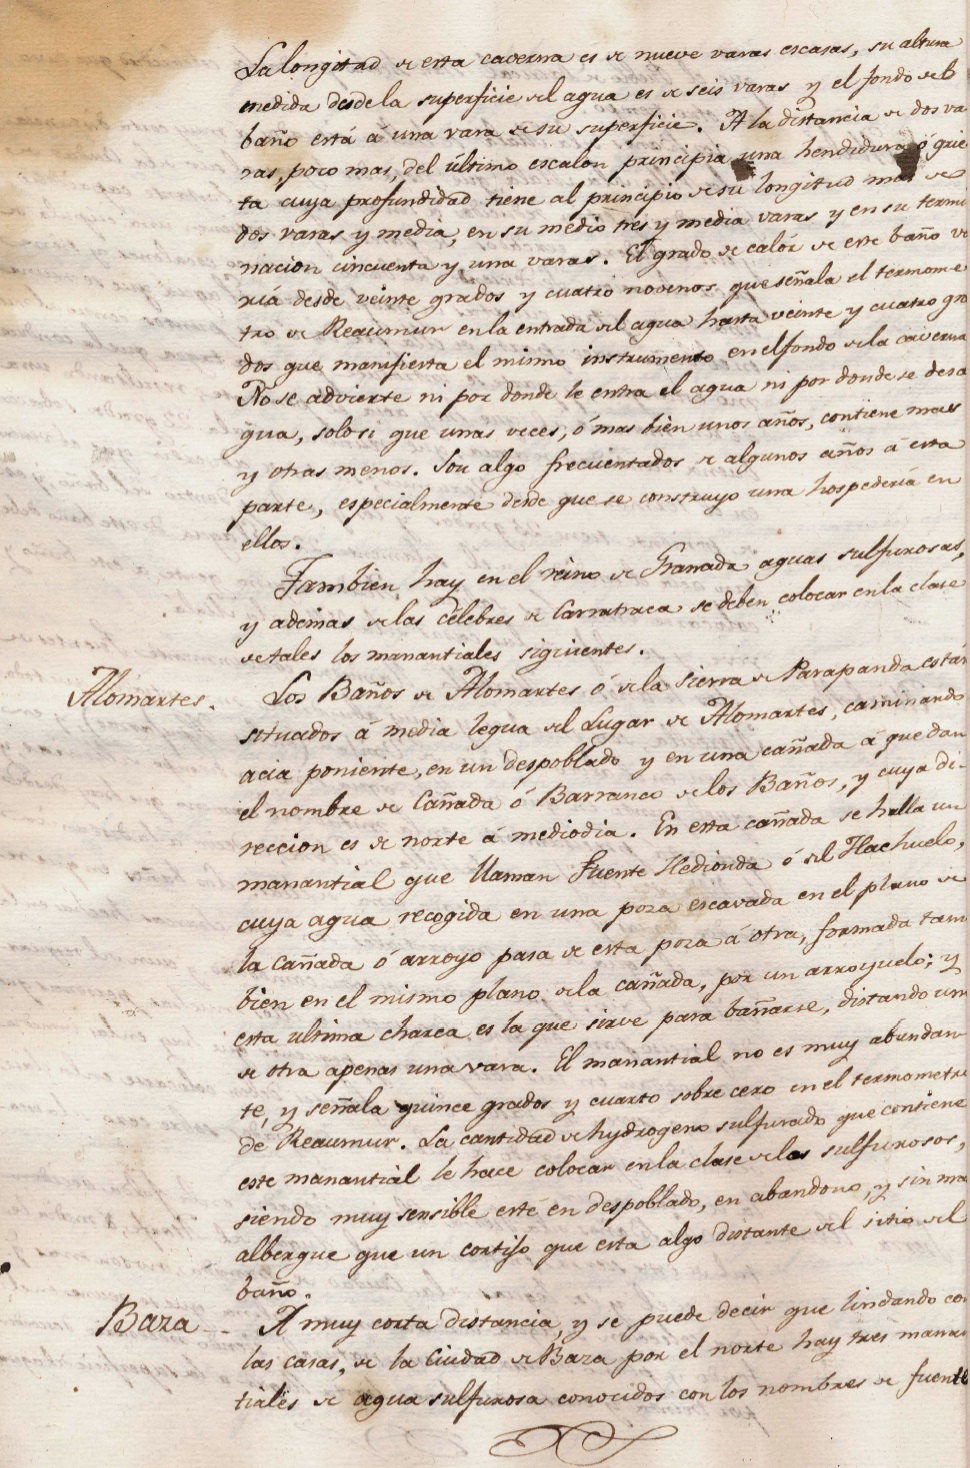 La longitud de esta caverna es de nueve varas escasas, su altura
medida desde la superficie del agua es de seis varas y el fondo del
baño está á una vara de su superficie. A la distancia de dos va
ras, poco mas, del último escalon principia una hendidura ó grie
ta cuya profundidad tiene al principio de su longitud mas de
dos varas y media, en su medio tres y media varas y en su termi
nacion cincuenta y una varas. El grado de calór de este baño va
ría desde veinte grados y cuatro novenos que señala el termome
tro de Reaumur en la entrada del agua hasta veinte y cuatro gra
dos que manifiesta el mismo instrumento en el fondo de la caverna
No se advierte ni por donde le entra el agua ni por donde se desa
gua, solo si que unas veces, ó mas bien unos años, contiene mas
y otras menos. Son algo frecuentados de algunos años á esta
parte, especialmente desde que se construyo una hospedería en
ellos.
Tambien hay en el reino de Granada aguas sulfurosas,
y ademas de las célebres de Carratraca se deben colocar en la clase
de tales los manantiales siguientes.
Alomartes.
Los Baños de Alomartes ó de la sierra de Parapanda están
situados á media legua del Lugar de Alomartes, caminando
acia poniente, en un despoblado y en una cañada á que dan
el nombre de Cañada ó Barranco de los Baños, y cuya di-
reccion es de norte á mediodia. En esta cañada se halla un
manantial que llaman Fuente Hedionda ó del Hachuelo,
cuya agua recogida en una poza escavada en el plano de
la cañada ó arroyo pasa de esta poza á otra, formada tam
bien en el mismo plano de la cañada, por un arroyuelo; y
esta ultima charca es la que sirve para bañarse, distando una
de otra apenas una vara. El manantial no es muy abundan
te, y señala quince grados y cuarto sobre cero en el termometro
de Reaumur. La cantidad de hydrogeno sulfurado que contiene
este manantial le hace colocar en la clase de los sulfurosos,
siendo muy sensible esté en despoblado, en abandono, y sin mas
albergue que un cortijo que esta algo distante del sitio del
baño.
Baza
A muy corta distancia, y se puede decir que lindando con
las casas, de la Ciudad de Baza por el norte hay tres manan
tiales de agua sulfurosa conocidos con los nombres de fuente